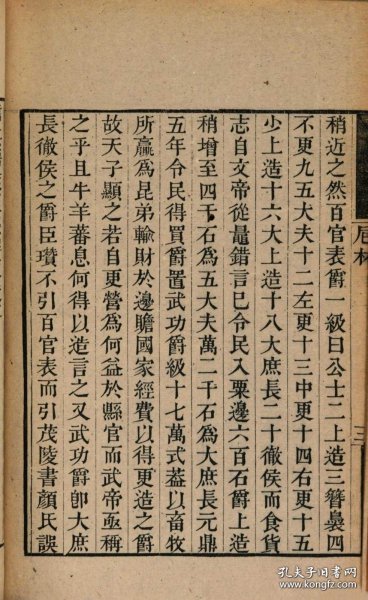 稍近之然百官表爵一級曰公士二上造三簪褭四
不更九五大夫十二左更十三中更十四右更十五
少上造十六大上造十八大庶長二十徹侯而食貨
志自文帝從鼂錯言已令民入粟邊六百石爵上造
稍增至四千石爲五大夫萬二千石爲大庶長元鼎
五年令民得買爵置武功爵級十七萬式葢以畜牧
所贏爲昆弟輸財於邊贍國家經費以得更造之爵
故天子顯之若自更營爲何益於縣官而武帝亟稱
之乎且牛羊蕃息何得以造言之又武功爵卽大庶
長徹侯之爵臣瓚不引百官表而引茂陵書顏氏誤
三
孔夫子旧书网
book.kongfz.com